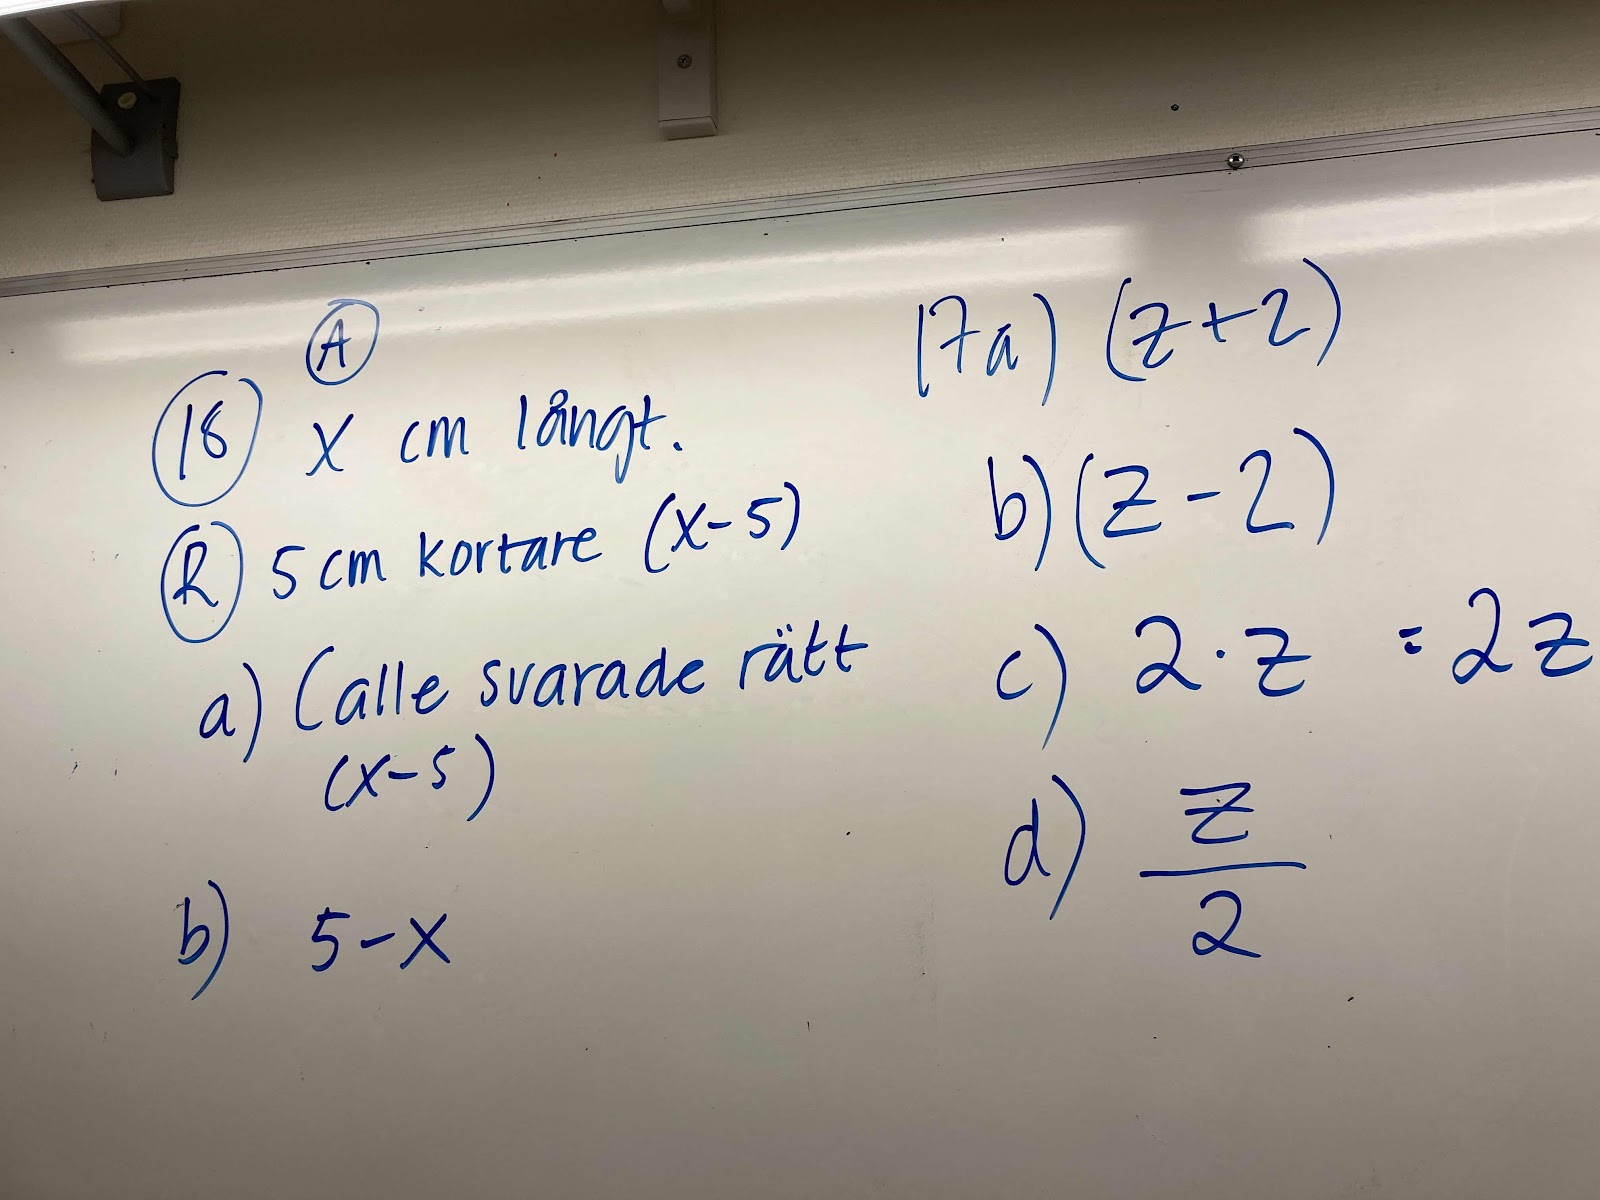 A
18 x cm långt.
R 5 cm kortare (x-5)
a) Calle svarade rätt
(x-5)
b) 5-x
17a) (z+2)
b) (z-2)
c) 2·z = 2z
d) z
2